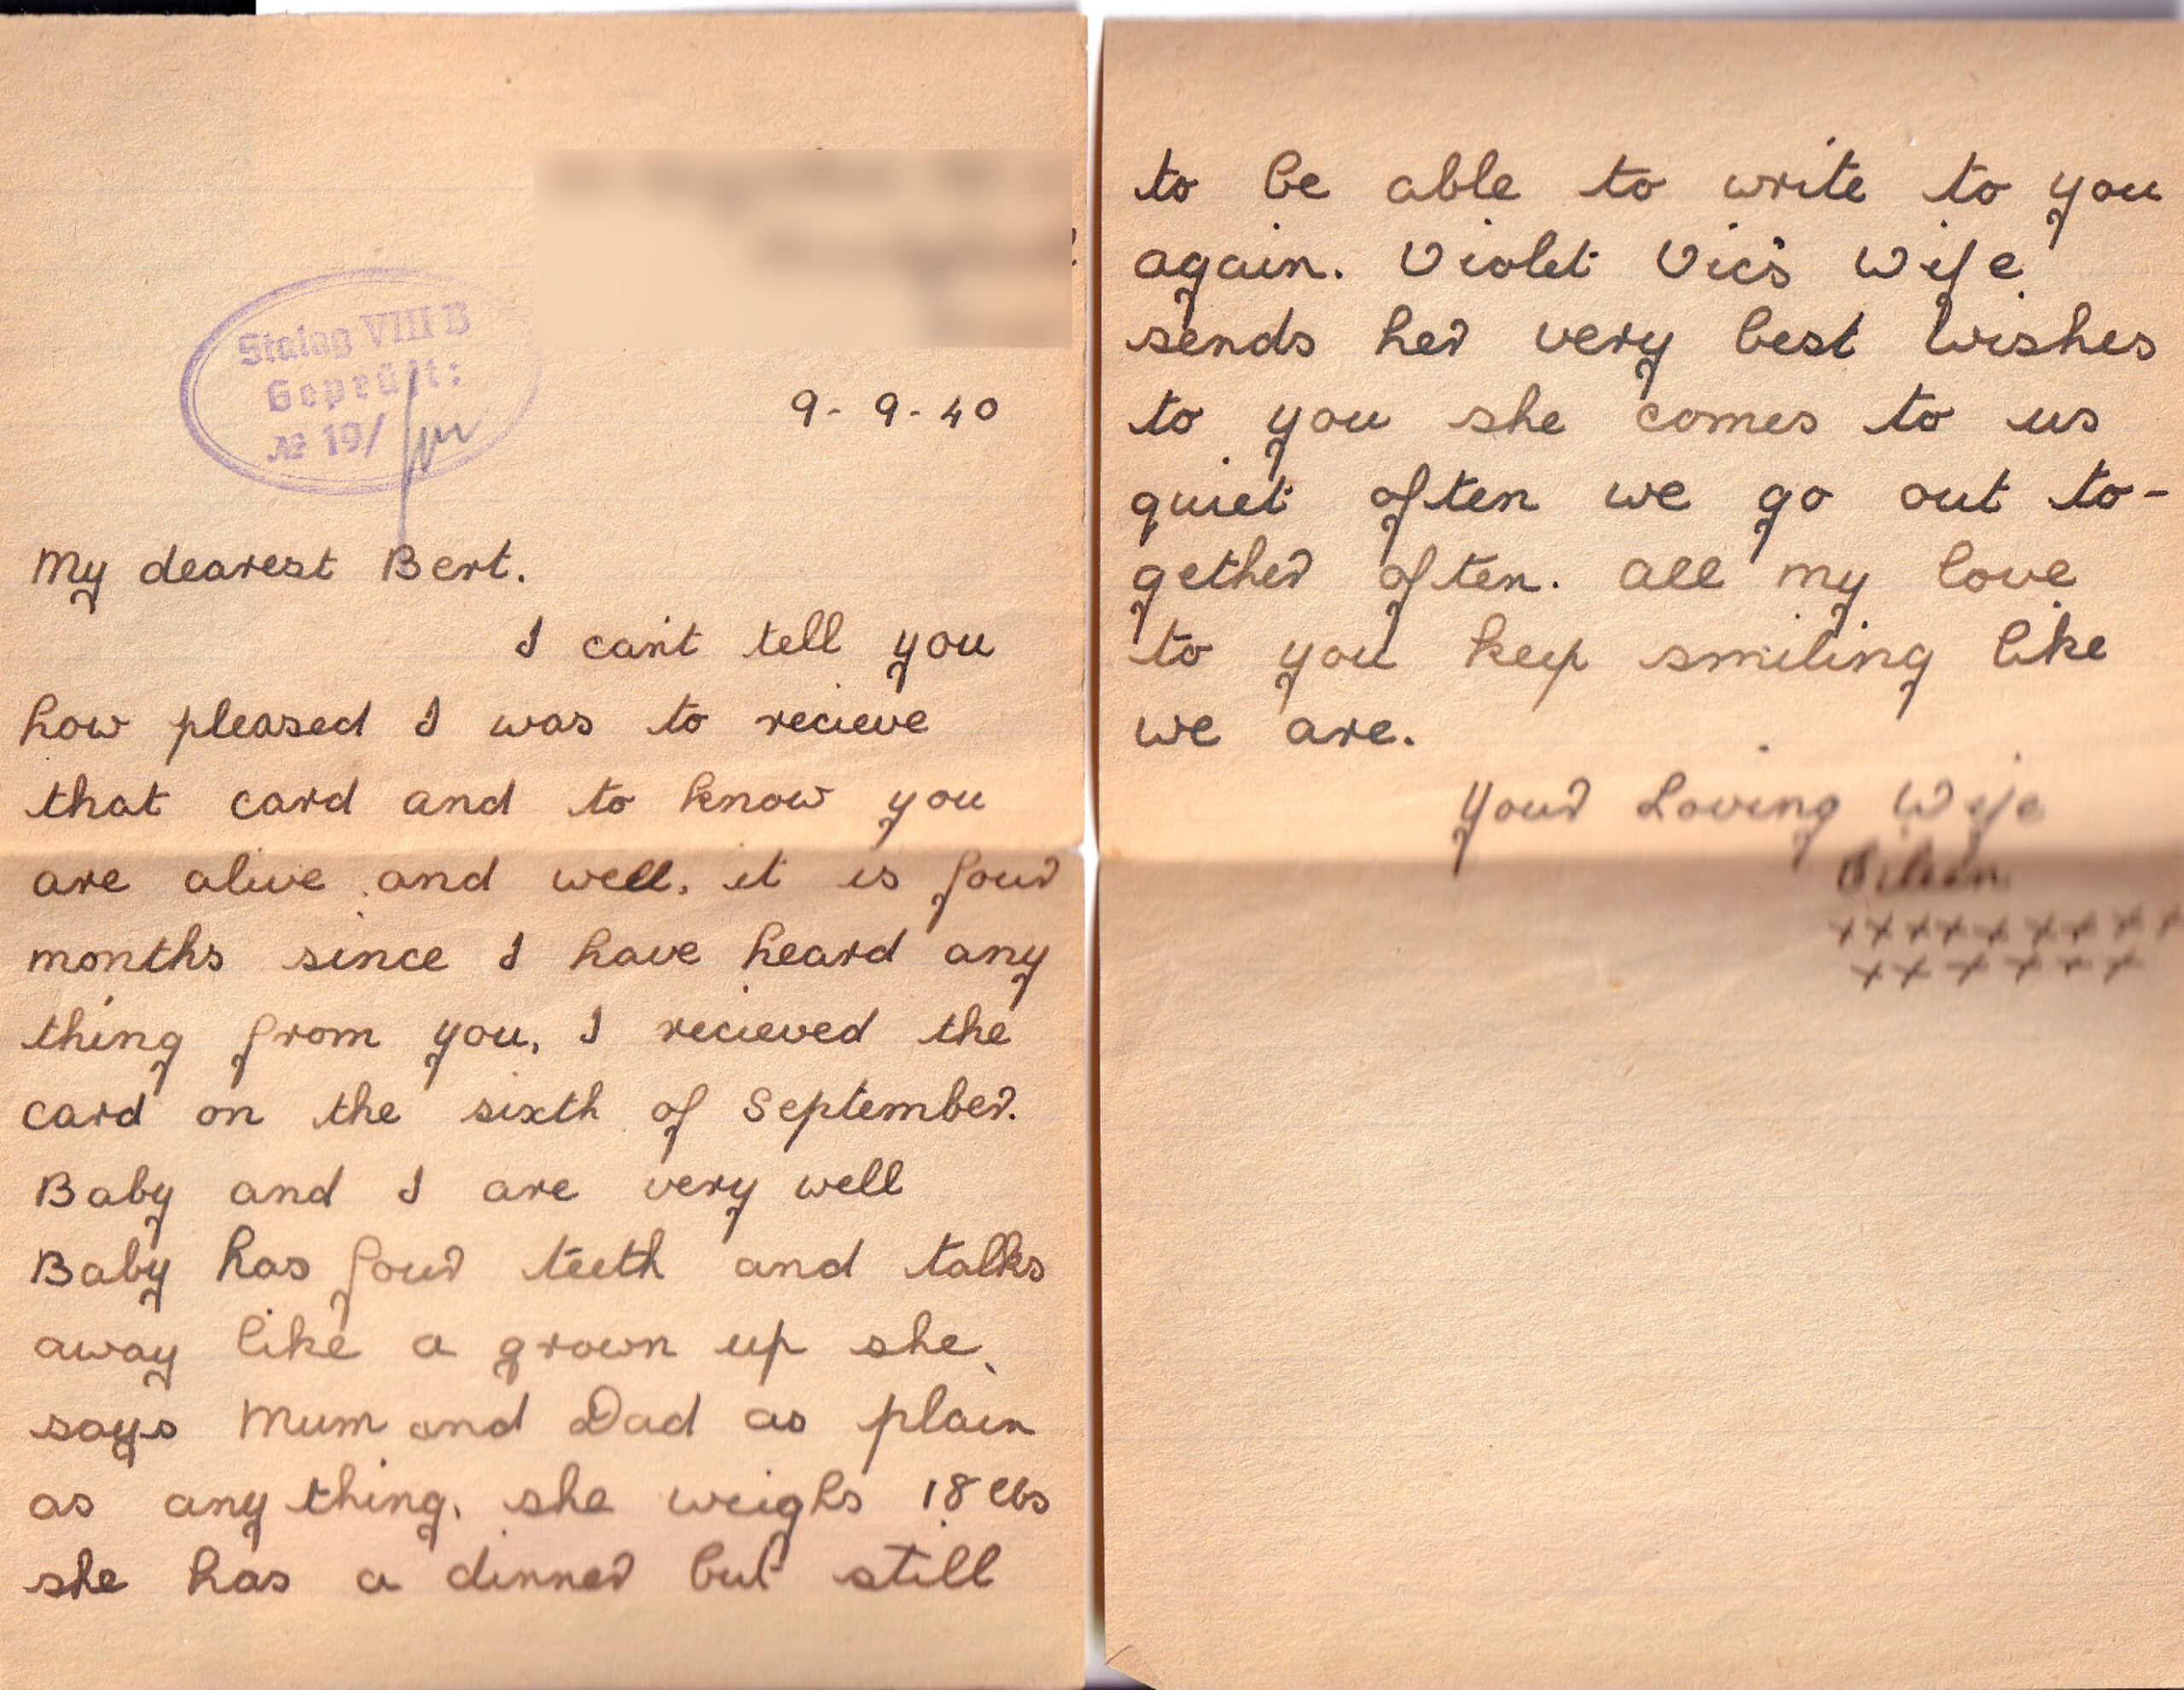 Stalag VIII B
Geprüft:
№ 19/
9-9-40
My dearest Bert.
I can't tell you
how pleased I was to recieve
that card and to know you
are alive and well. it is four
months since I have heard any
thing from you, I recieved the
card on the sixth of September.
Baby and I are very well
Baby has four teeth and talks
away like a grown up she
says Mum and Dad as plain
as any thing, she weighs 18 lbs
she has a dinner but still
to be able to write to you
again. Violet Vic's Wife
sends her very best wishes
to you she comes to us
quiet often we go out to-
gether often. All my love
to you keep smiling like
we are.
Your Loving Wife
Eileen
xxxxxxxxx
xxxxxx